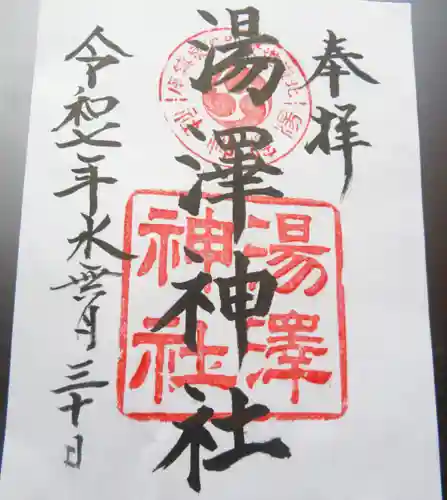 奉拝
湯澤神社
湯澤
神社
令和七年水無月三十日